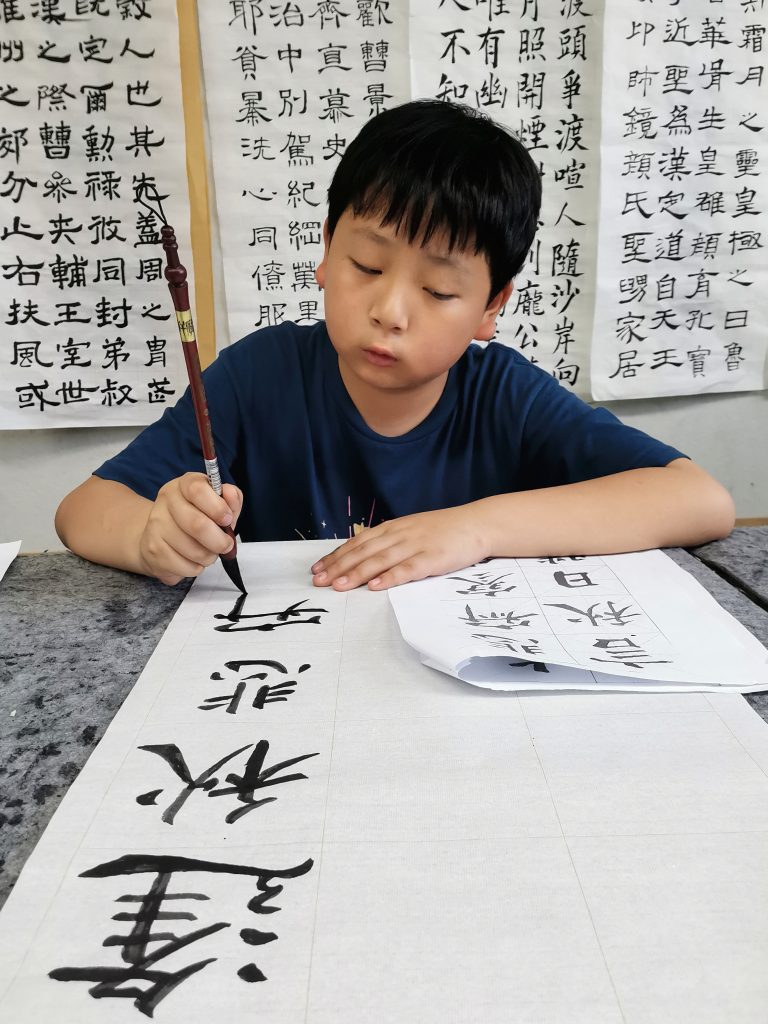 霜月之靈皇極之日魯
華胥生皇雄顏育孔寶
子近聖為漢定道自天王
卬師鏡顏氏聖舅家居
渡頭爭渡喧人隨沙岸向
月照開煙
到龐公
唯有幽
人不知
歡曹景
齊宣慕史
治中別駕紀綱萬里
耶貧暴洗心同僚服
穀人也其先蓋周之胄武
既定爾勳祿攸同封弟叔
漢之際曹參夾輔王室世
州之郊分止右扶風或
言秋日
悲寂寥
逢秋悲